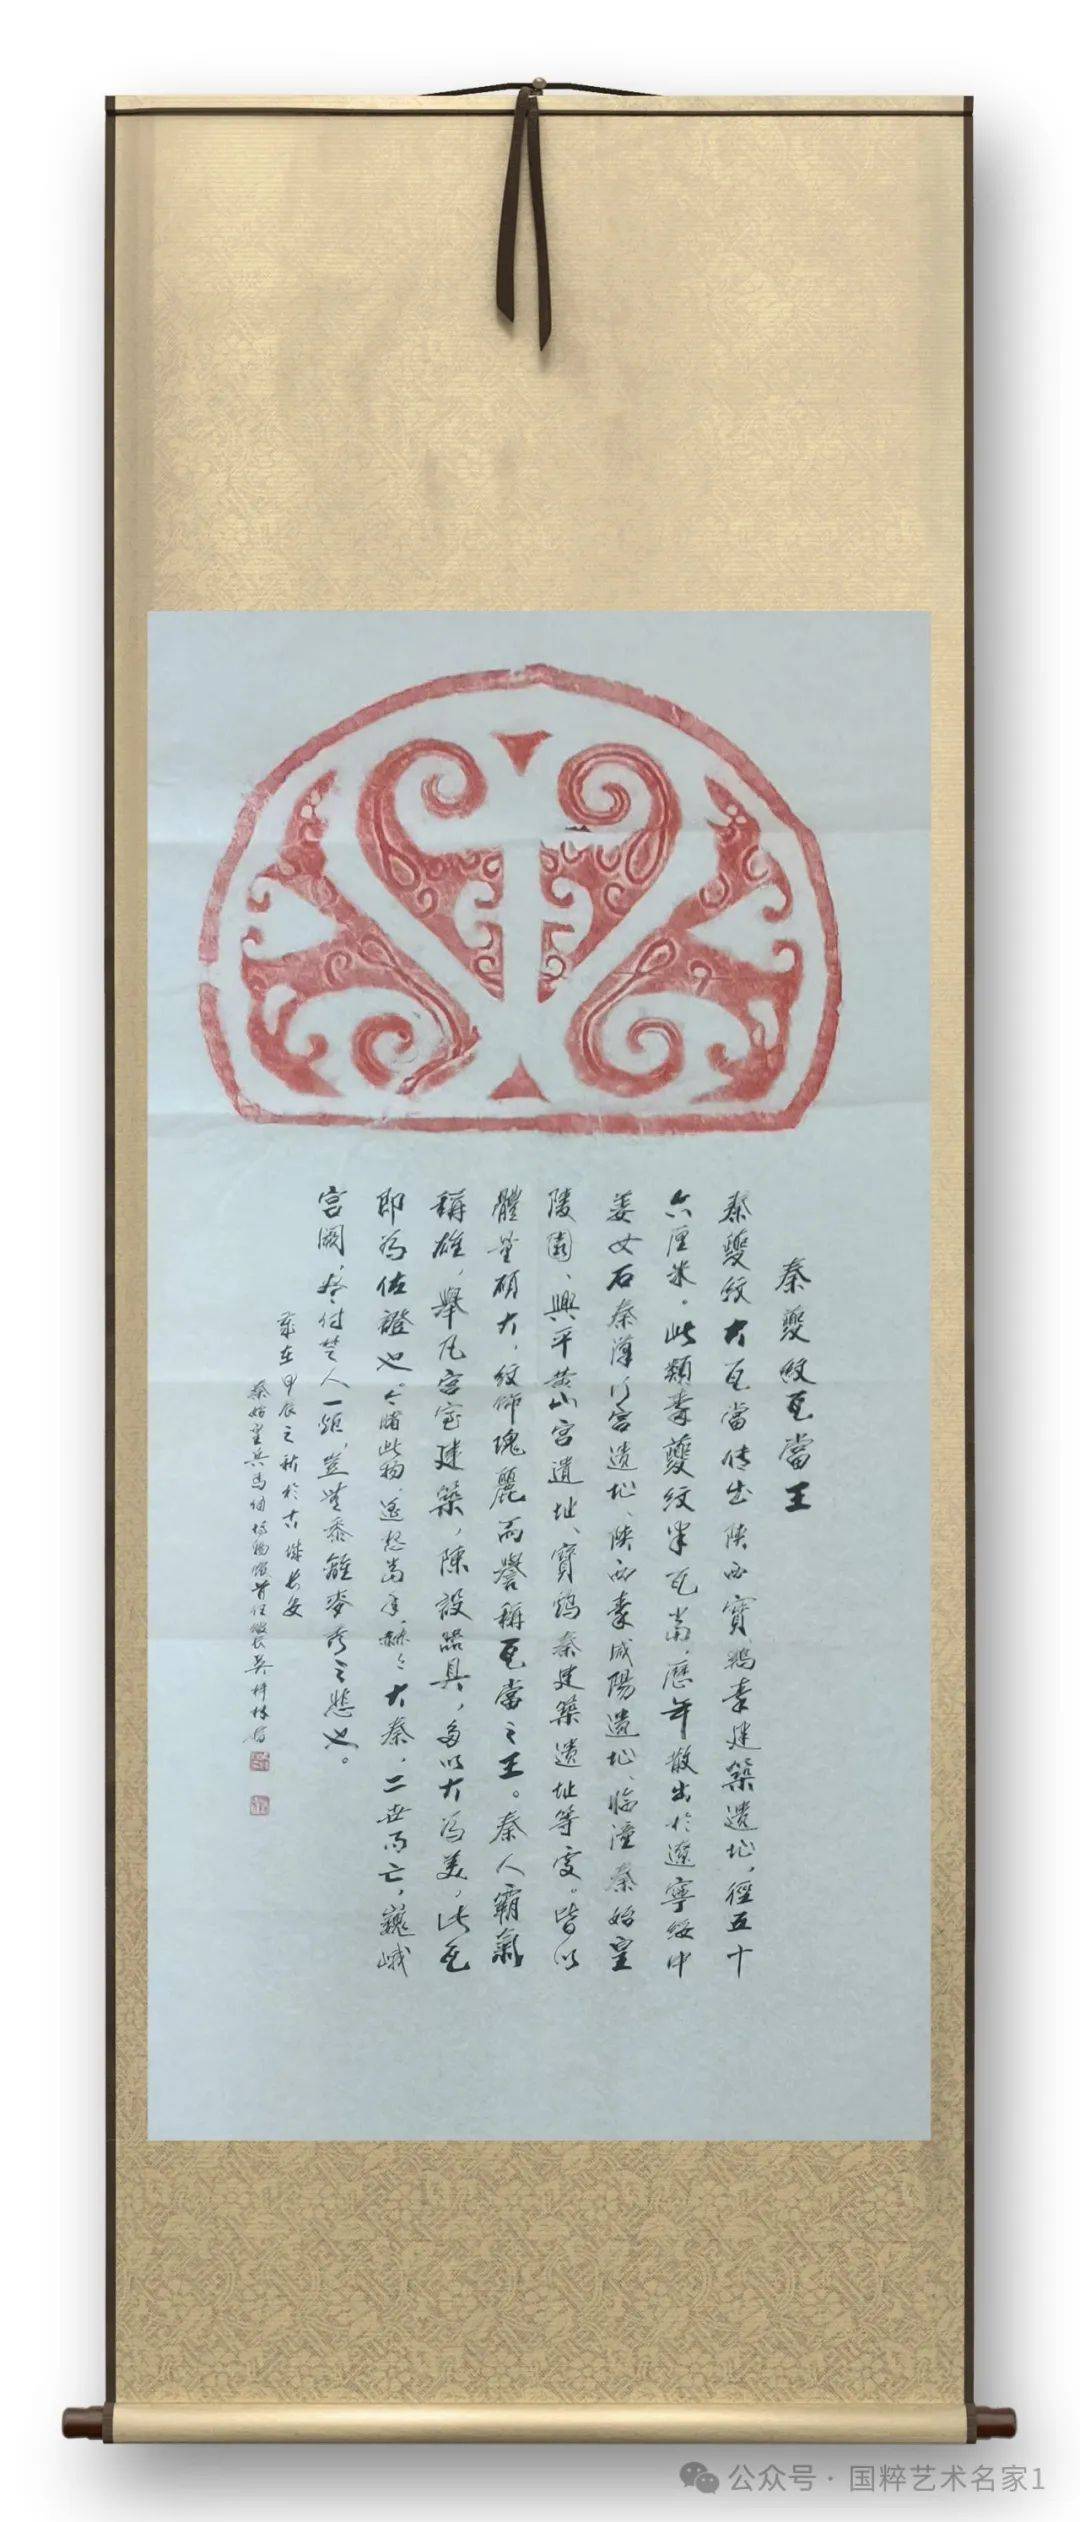 秦夔紋瓦當王
秦夔紋大瓦當傳出陝西寶鷄秦建築遺址，徑五十
六厘米。此類秦夔紋半瓦當，歷年散出於遼寧綏中
姜女石秦漢行宮遺址、陝西秦咸陽遺址、臨潼秦始皇
陵園、興平黃山宮遺址、寶鷄秦建築遺址等處。皆以
體量碩大，紋飾瑰麗而譽稱瓦當之王。秦人霸氣
稱雄，舉凡宮室建築，陳設器具，多以大為美，此瓦
即為佐證也。今睹此物，遥想當年，赫々大秦，二世而亡，巍峨
宮闕，盡付楚人一炬，豈無黍離麥秀之悲也。
歲在甲辰之秋於古城長安
秦始皇兵馬俑博物館首任館長吳梓林
公众号·国粹艺术名家1